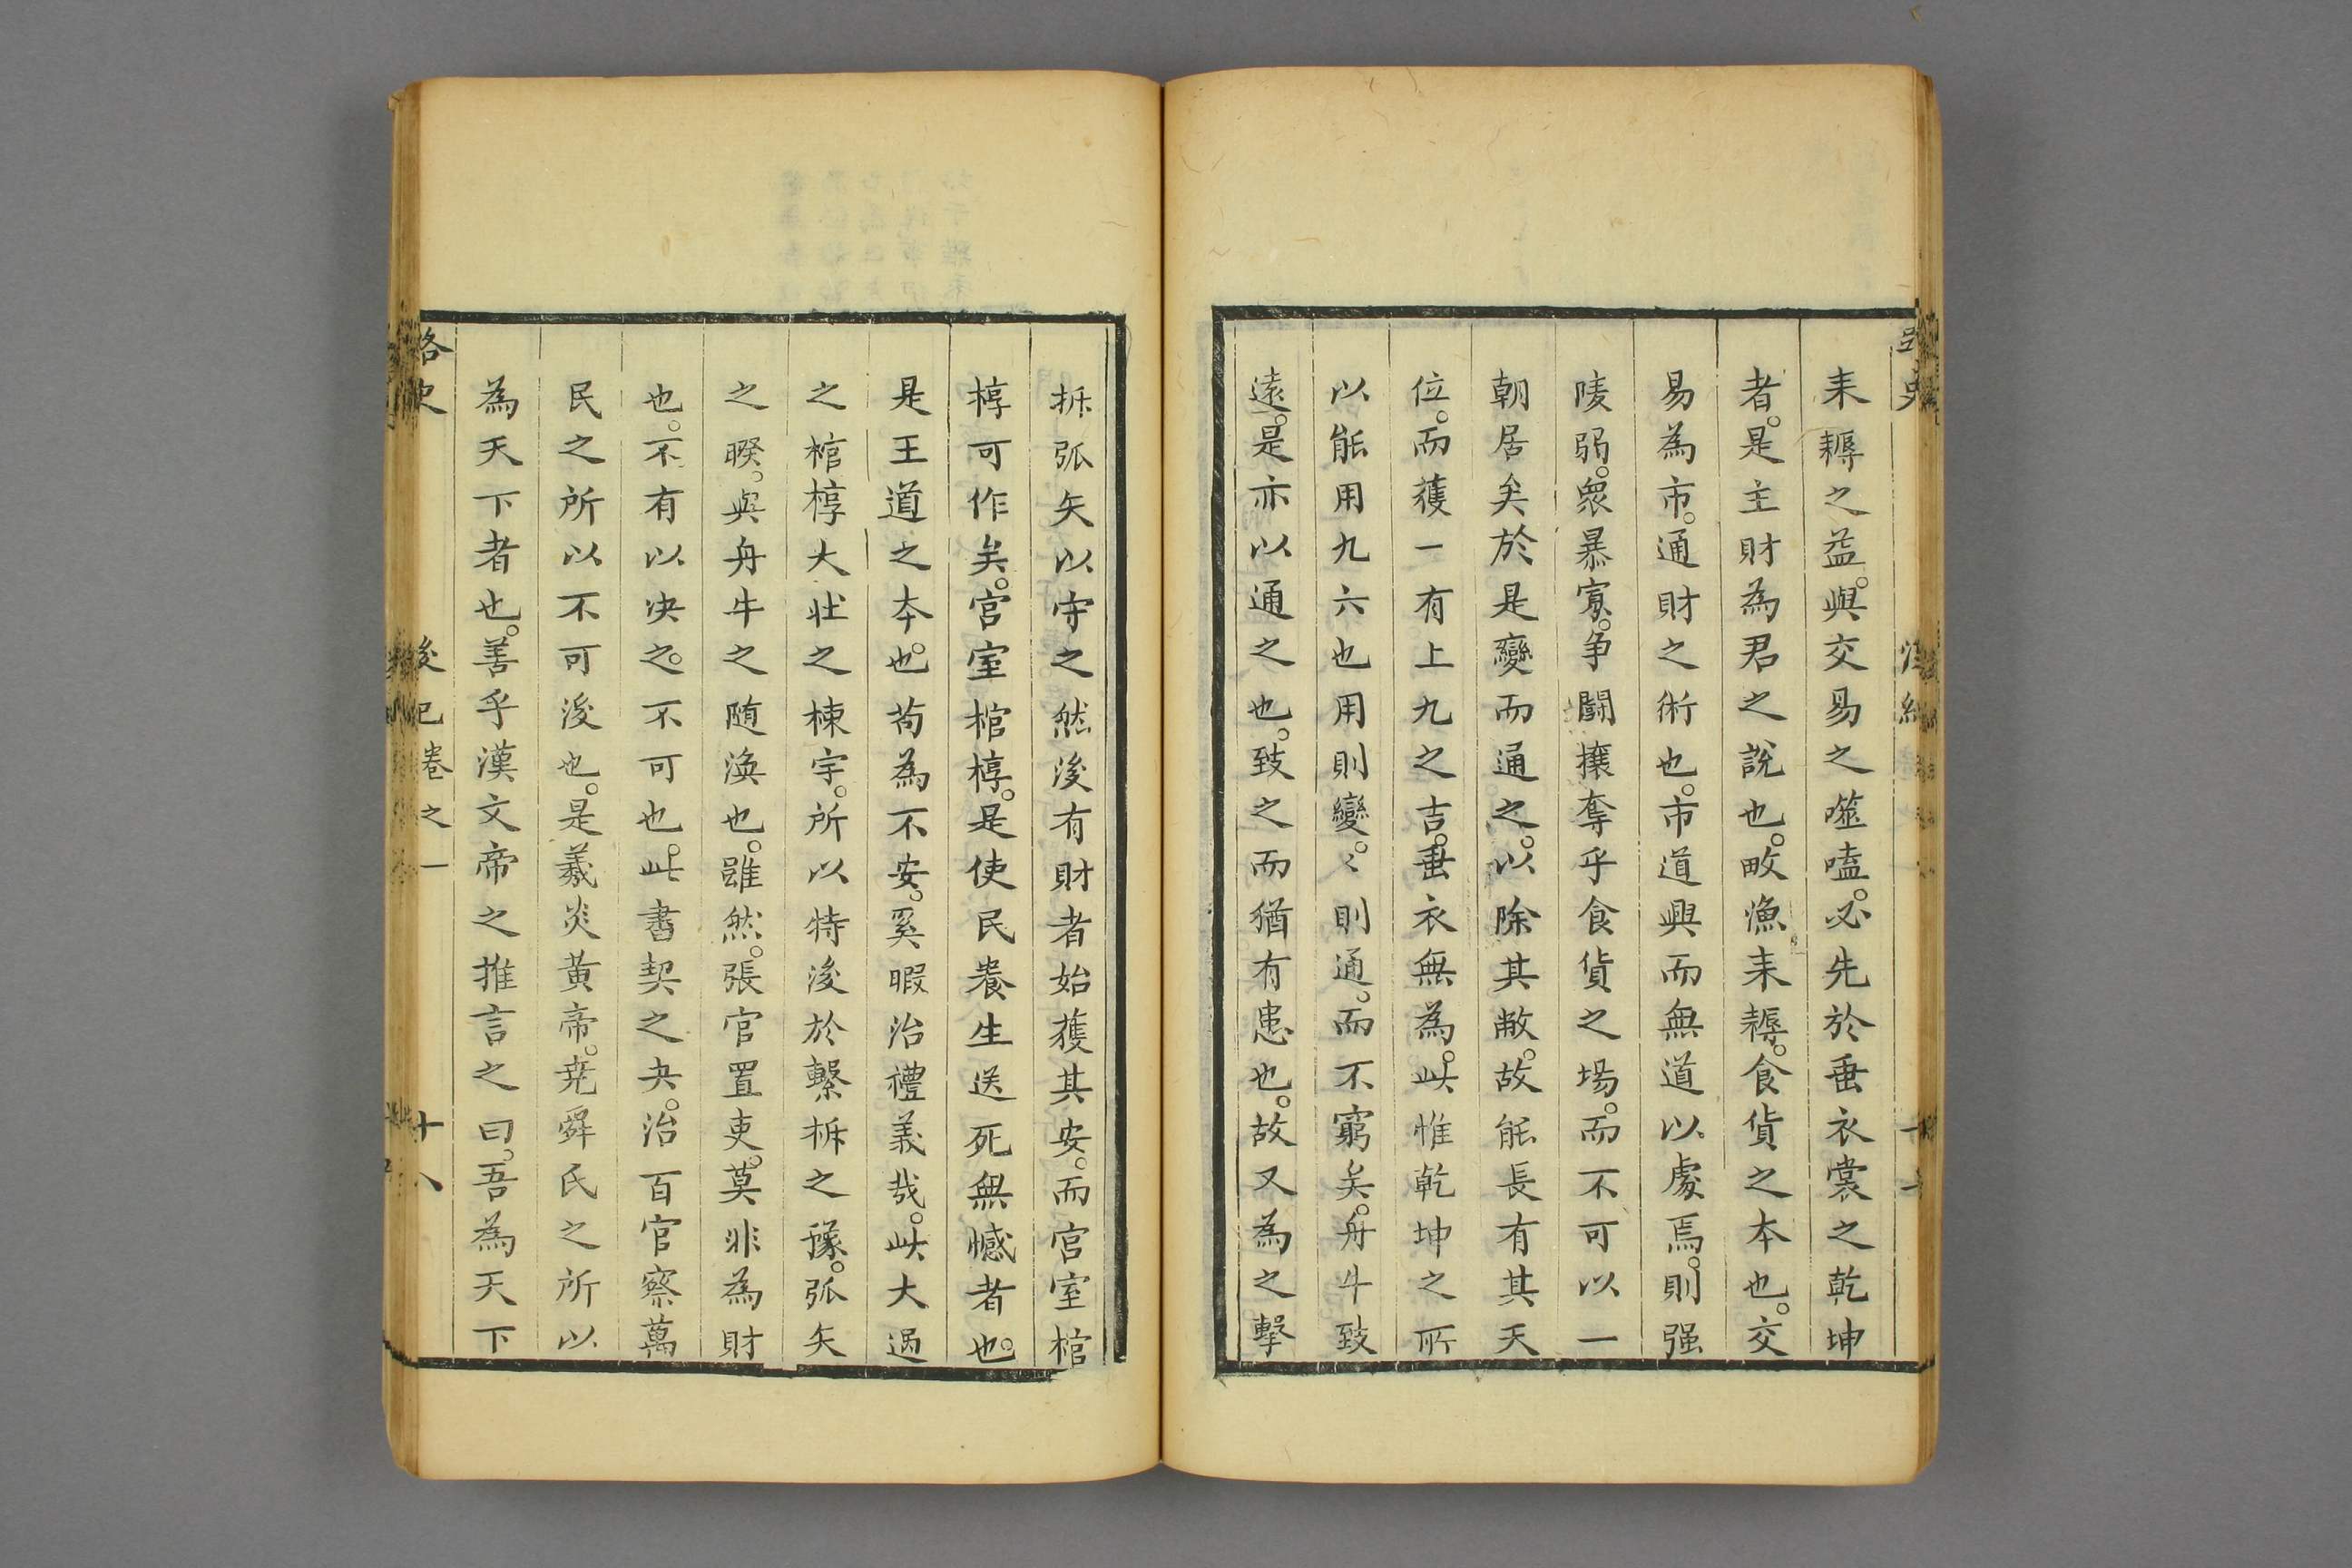 耒耨之益。與交易之噬嗑。必先於垂衣裳之乾坤
者。是主財為君之說也。畋漁耒耨。食貨之本也。交
易為市。通財之術也。市道興而無道以處焉。則强
陵弱。衆暴寡。争鬭攘奪乎食貨之場。而不可以一
朝居矣於是變而通之。以除其敝。故能長有其天
位。而獲一有上九之吉。垂衣無為。此惟乾坤之所
以能用九六也用則變。〻則通。而不窮矣。舟牛致
遠。是亦以通之也。致之而猶有患也。故又為之擊
柝弧矢以守之然後有財者始獲其安。而宫室棺
椁可作矣。宫室棺椁。是使民養生送死無憾者也。
是王道之本也。苟為不安。奚暇治禮義哉。此大過
之棺椁大壯之棟宇。所以特後於繫柝之豫。弧矢
之睽。與舟牛之随渙也。雖然。張官置吏。莫非為財
也。不有以决之。不可也。此書契之夬。治百官察萬
民之所以不可後也。是羲炎黄帝。尭舜氏之所以
為天下者也。善乎漢文帝之推言之曰。吾為天下
路史
後紀卷之一
十八